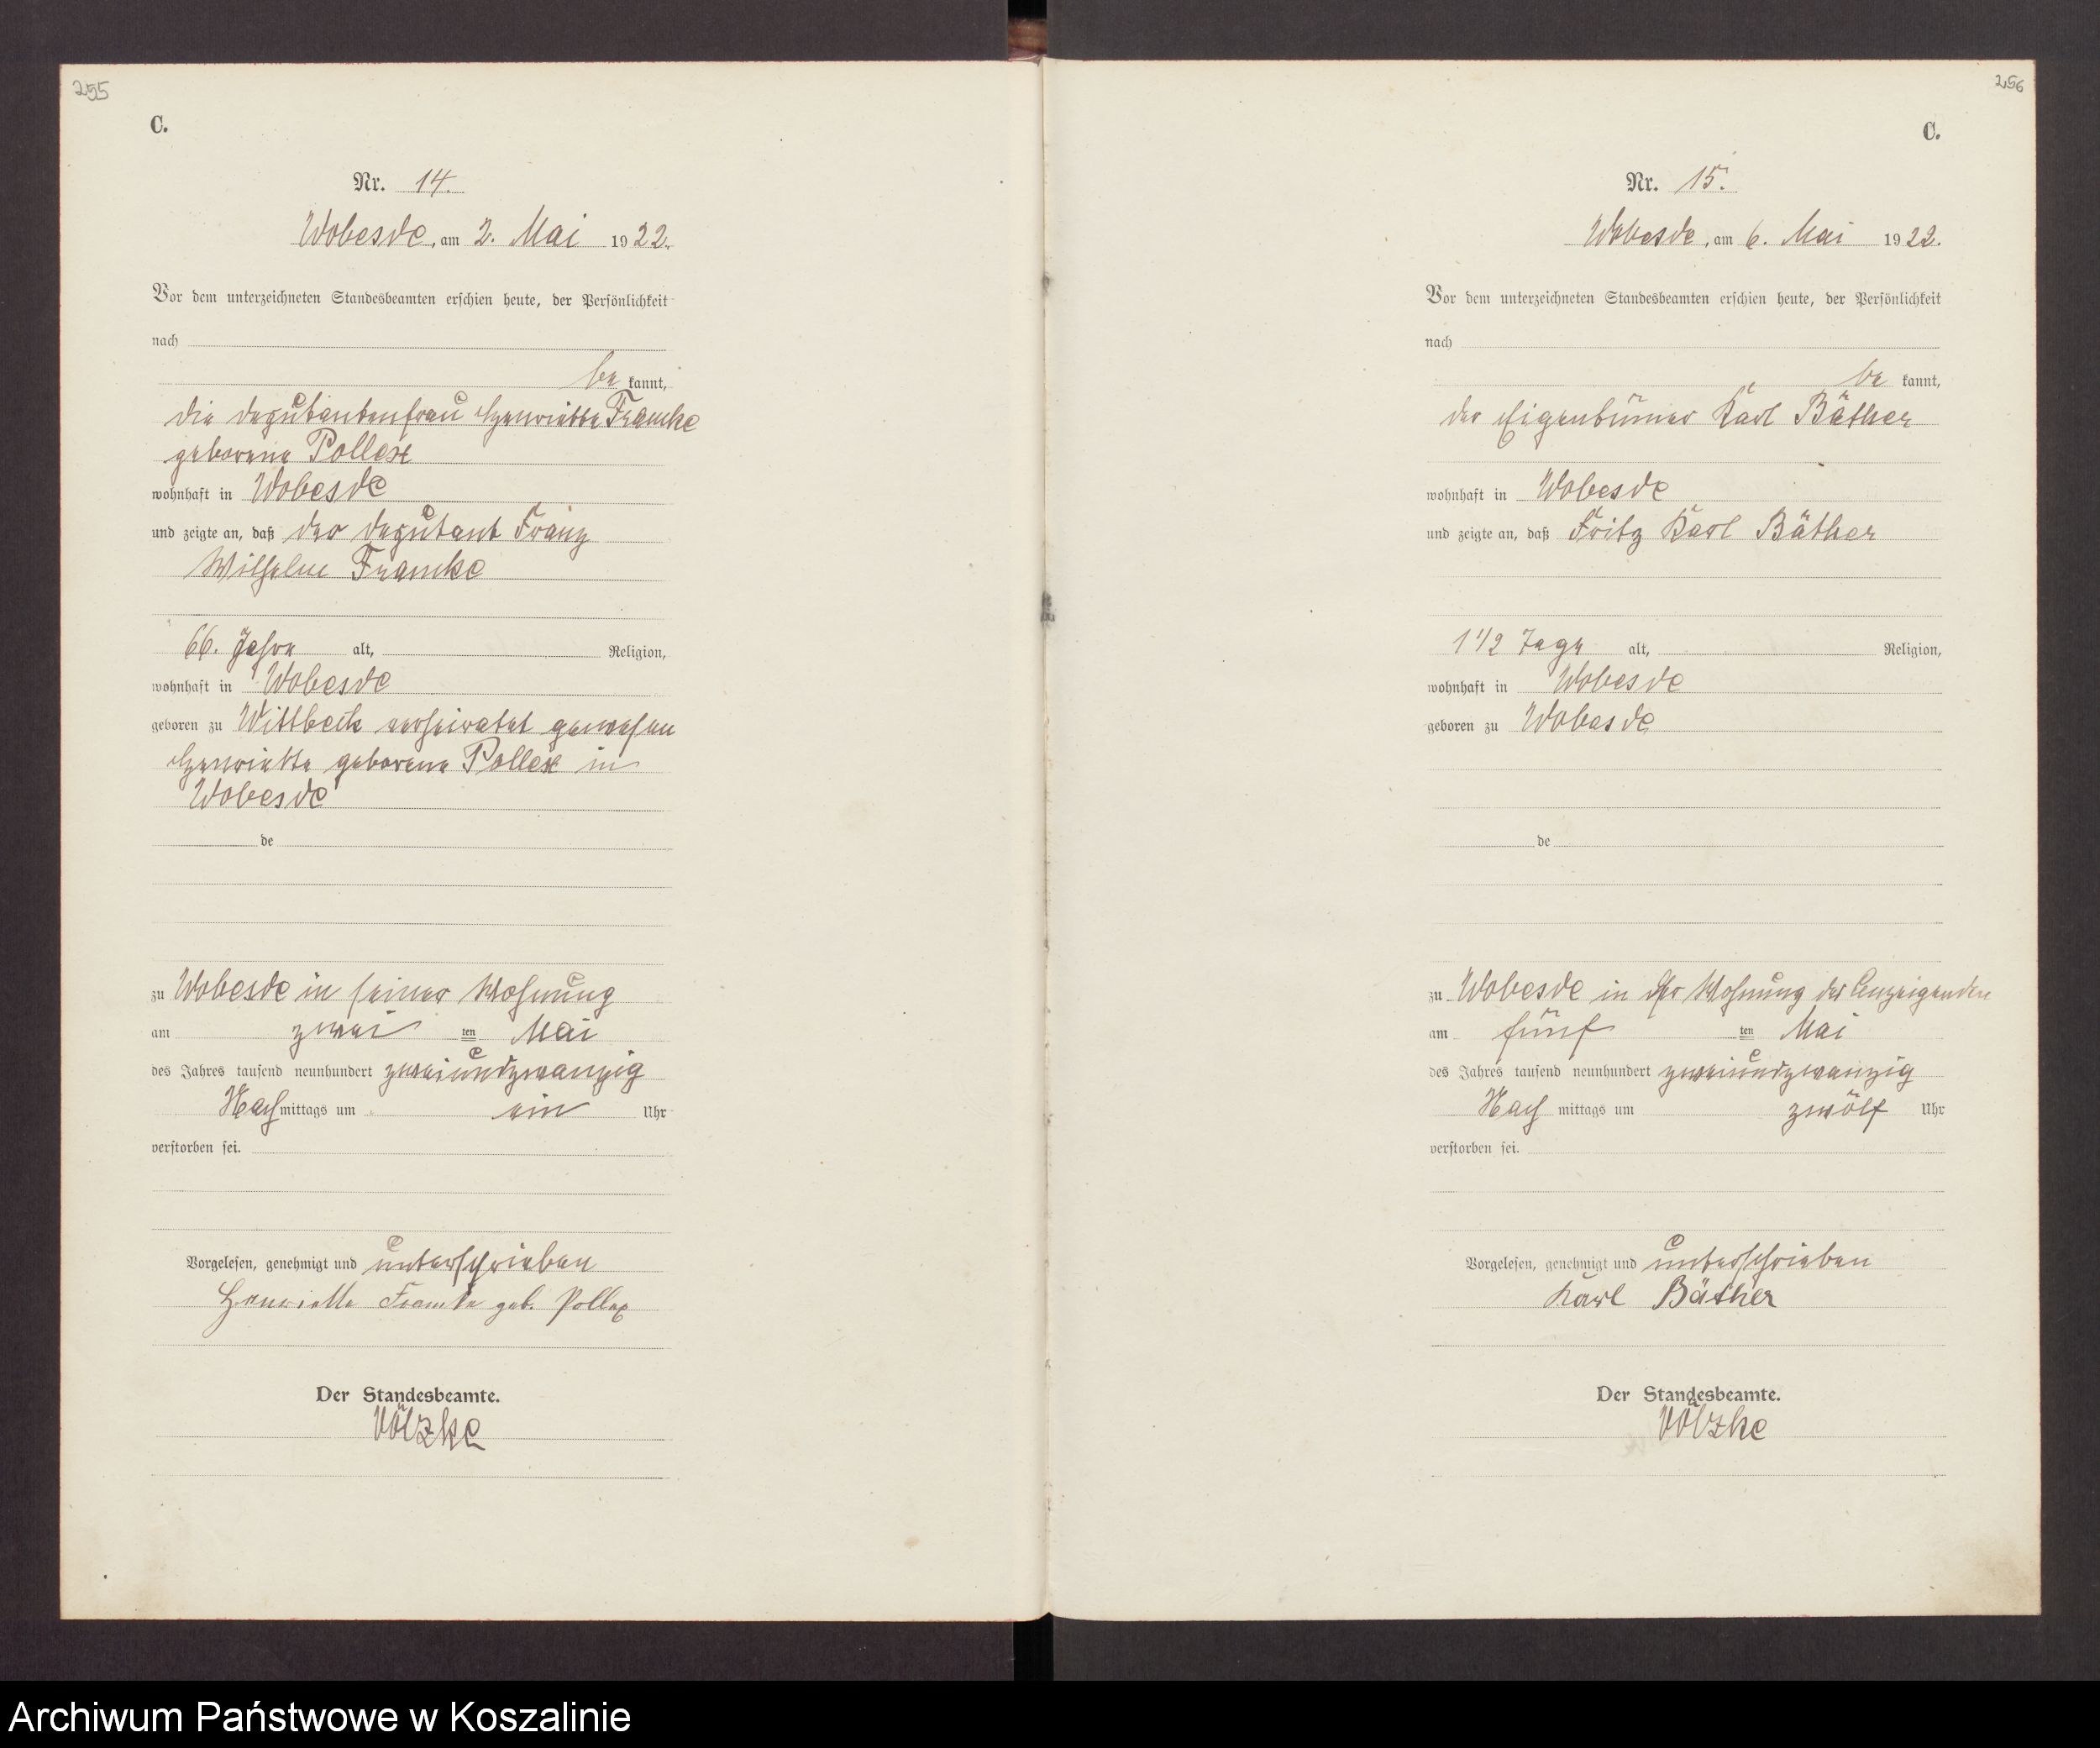 255
C.
Nr. 14.
Wobesde, am 2. Mai 1922.
Vor dem unterzeichneten Standesbeamten erschien heute, der Persönlichkeit
nach
be kannt,
die Deputantenfrau Henriette Framke
geborene Pollex
wohnhaft in Wobesde
und zeigte an, daß der Deputant Franz
Wilhelm Framke
66. Jahre alt, Religion,
wohnhaft in Wobesde
geboren zu Wittbeck verheiratet gewesen
Henriette geborene Pollex in
Wobesde
de
zu Wobesde in seiner Wohnung
am zwei ten Mai
des Jahres tausend neunhundert zweiundzwanzig
Nach mittags um ein Uhr
verstorben sei.
Vorgelesen, genehmigt und unterschrieben
Henriette Framke geb. Pollex
Der Standesbeamte.
Völzke
256
C.
Nr. 15.
Wobesde, am 6. Mai 1922.
Vor dem unterzeichneten Standesbeamten erschien heute, der Persönlichkeit
nach
be kannt,
der Eigentümer Karl Bäther
wohnhaft in Wobesde
und zeigte an, daß Fritz Karl Bäther
1 1/2 Tage alt, Religion,
wohnhaft in Wobesde
geboren zu Wobesde
de
zu Wobesde in der Wohnung des Anzeigenden
am fünf ten Mai
des Jahres tausend neunhundert zweiundzwanzig
Nach mittags um zwölf Uhr
verstorben sei.
Vorgelesen, genehmigt und unterschrieben
Karl Bäther
Der Standesbeamte.
Völzke
Archiwum Państwowe w Koszalinie